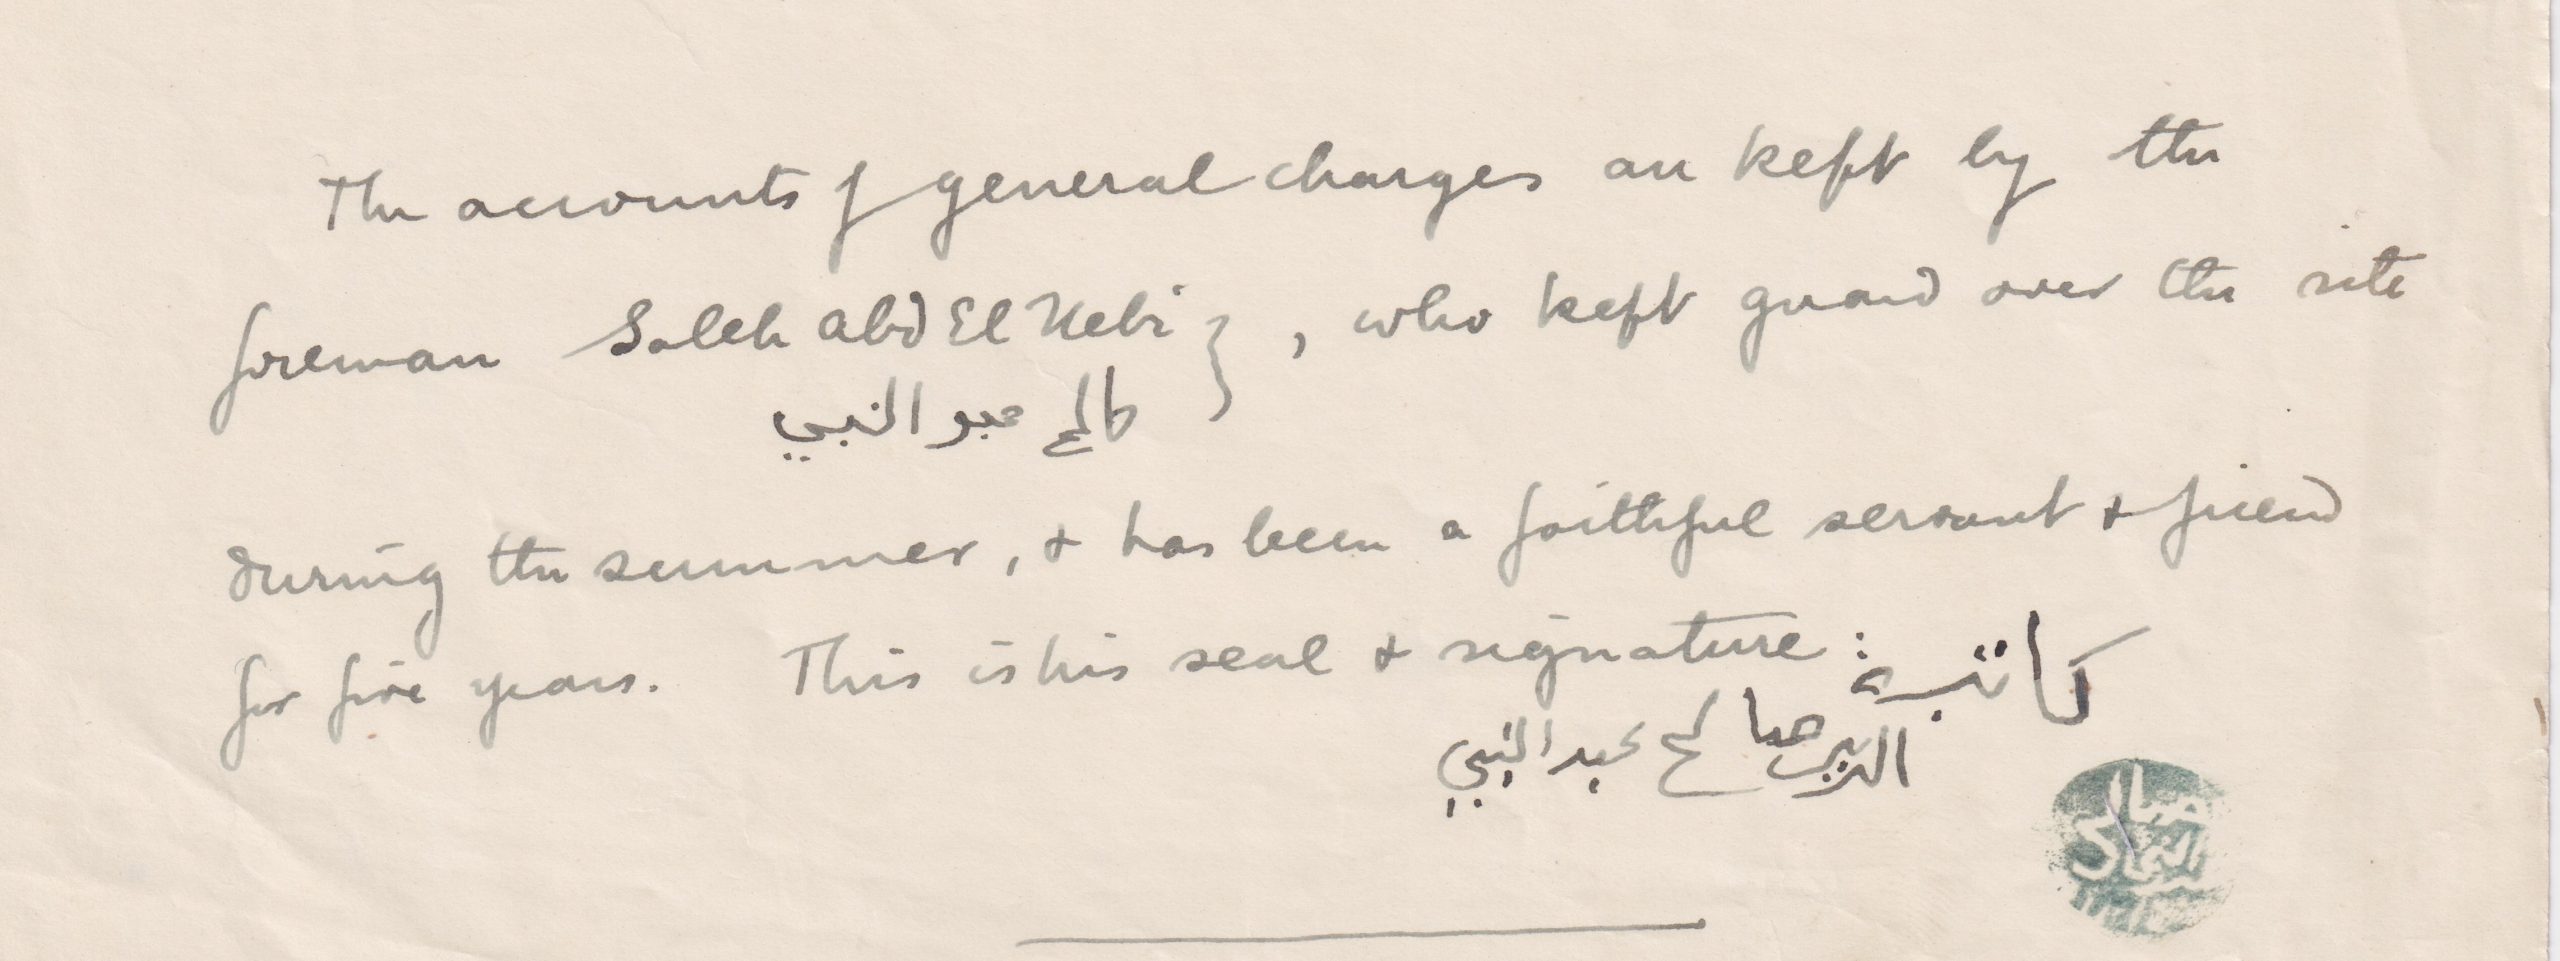 The accounts of general charges are kept by the
foreman Saleh Abd El Nebi } , who kept guard over the site
صالح عبد النبي
during the summer, & has been a faithful servant & friend
for five years. This is his seal & signature:
كاتبه
الريس صالح عبد النبي
صالح